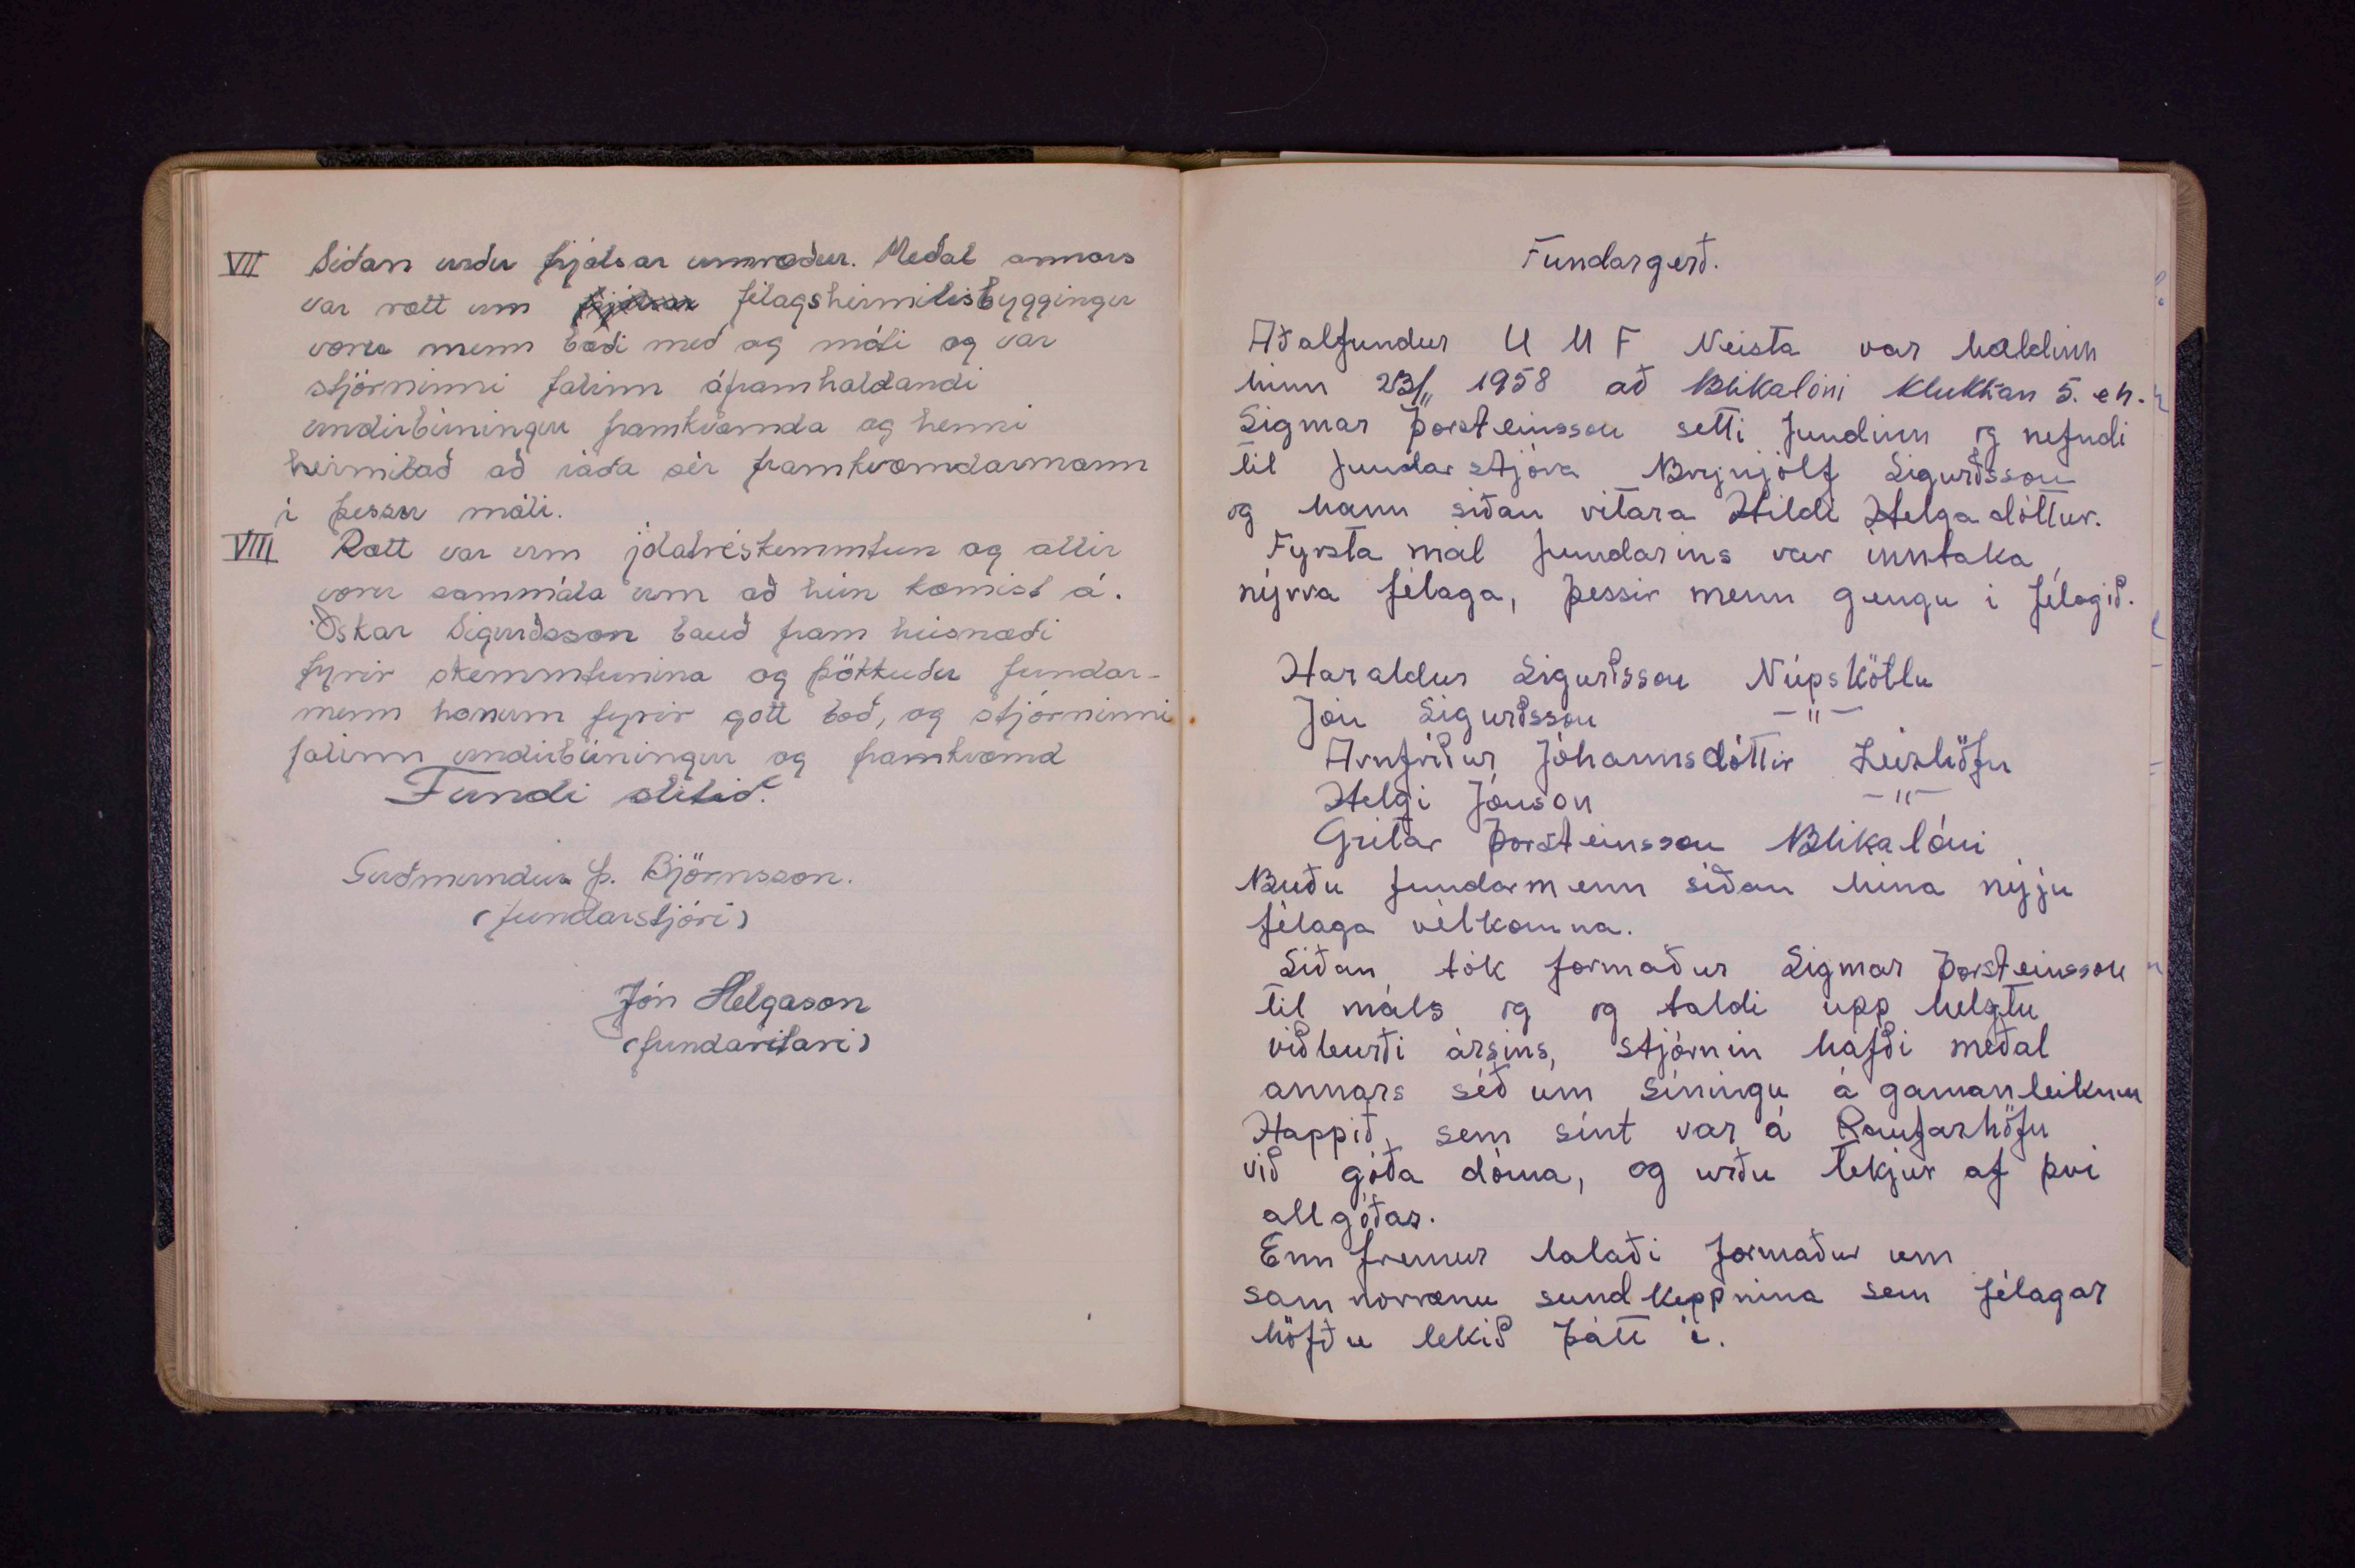 VII Siðan urðu frjálsar umræður. Meðal annars
var rætt um félagsheimilisbyggingu
voru menn bæði með og móti og var
stjórninni falinn áframhaldandi
undirbúningur framkvæmda og henni
heimilað að ráða sér framkvæmdarmann
í þessu máli.
VIII Rætt var um jólatréskemmtun og allir
voru sammála um að hún komist á.
Óskar Sigurðsson bauð fram húsnæði
fyrir skemmtunina og þökkuðu fundar-
menn honum fyrir gott boð, og stjórninni
falinn undirbúningur og framkvæmd
Fundi slitið.
Guðmundur Þ. Björnsson.
(fundarstjóri)
Jón Helgason
(fundaritari)
Fundargerð.
Aðalfundur U M F Neista var haldinn
hinn 23/11 1958 að Blikalóni klukkan 5. eh.
Sigmar Þorsteinsson setti fundinn og nefndi
til fundarstjóra Brynjólf Sigurðsson
og hann siðan ritara Hildi Helgadóttur.
Fyrsta mál fundarins var inntaka
nýrra félaga, þessir menn gengu i félagið.
Haraldur Sigurðsson Núpskötlu
Jón Sigurðsson —"—
Arnfríður Jóhannsdóttir Leirhöfn
Helgi Jónson —"—
Grétar Þorsteinsson Blikalóni
Buðu fundarmenn siðan hina nýju
félaga vélkomna.
Siðan tók formaður Sigmar Þorsteinsson
til máls og og taldi upp helstu
viðburði ársins, stjórnin hafði meðal
annars séð um síningu á gamanleiknum
Happið, sem sínt var á Raufarhöfn
við góða dóma, og urðu tekjur af þvi
allgóðar.
Enn fremur talaði formaður um
samnorrænu sundkeppnina sem félagar
höfðu tekið þátt í.